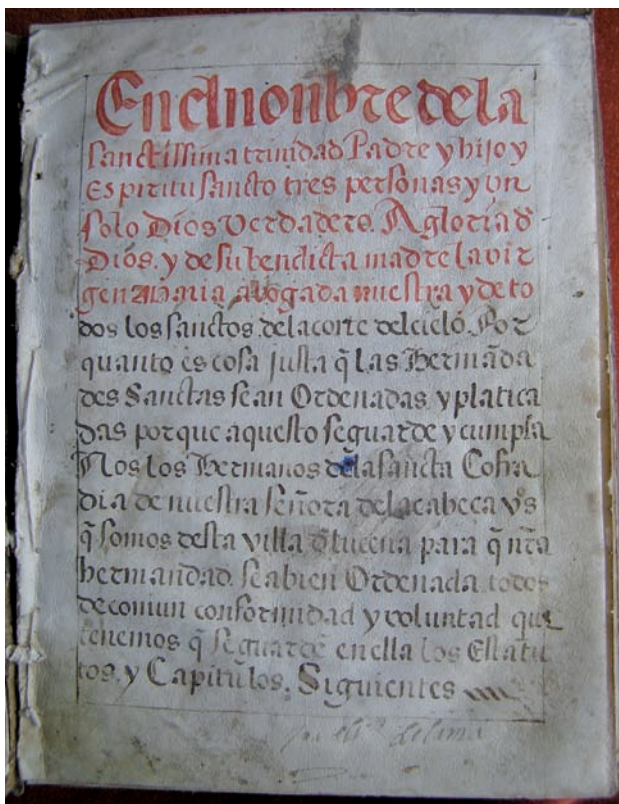 En el nonbre de la
sanctissima trinidad Padre y hijo y
Espiritu sancto tres personas y vn
solo Dios Verdadero. A gloria đ
Dios. y de su bendicta madre la vir
gen Maria abogada nuestra y de to
dos los sanctos de la corte del cielo. Por
quanto es cosa justa q̃ las Hermãda
des Sanctas sean Ordenadas y platica
das porque aquesto se guarde y cumpla
Nos los Hermanos de la sancta Cofra
dia de nuestra señora de la cabeca
q̃ somos desta villa đ lucena para q̃ nr̃a
hermandad sea bien Ordenada todos
de comun conformidad y voluntad que
tenemos q̃ se guarde en ella los Estatu
tos. y Capitulos. Siguientes